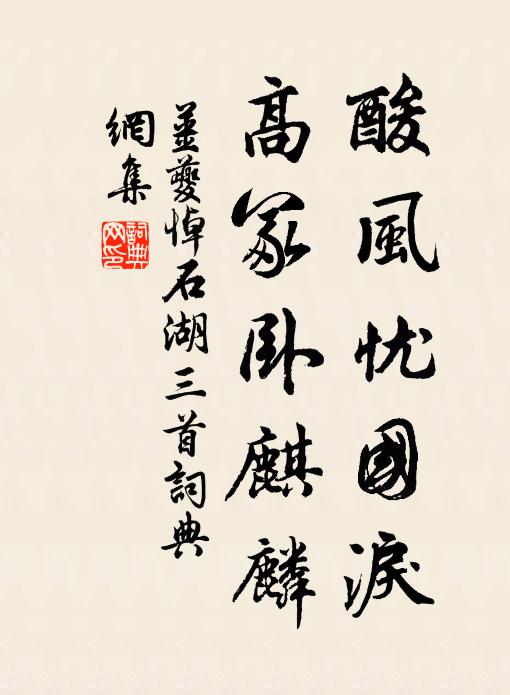 酸風忧國淚
高冢卧麒麟
姜夔悼石湖三首詞典
網集
詞典
网印